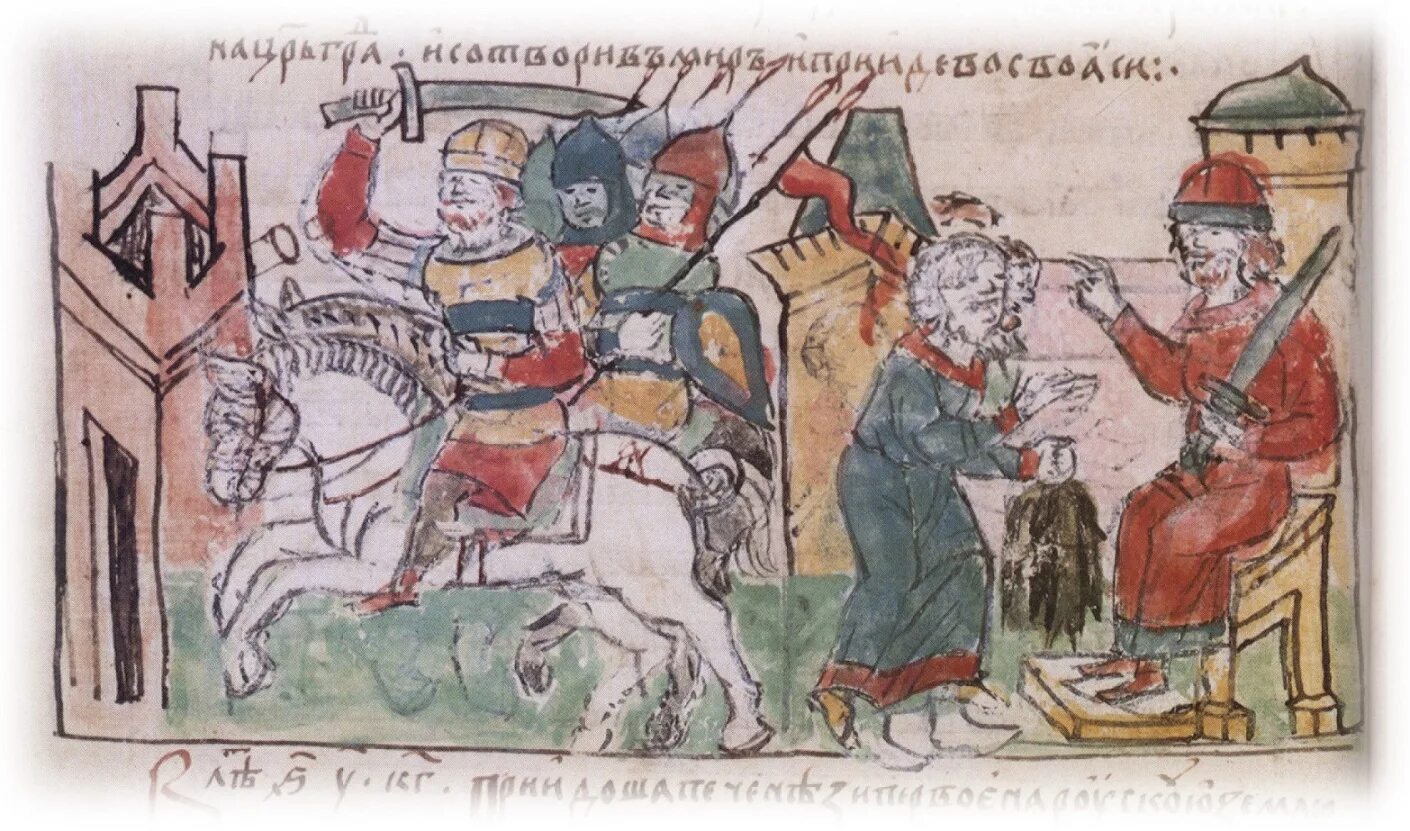 нацр҃ьграⷣ · и сотворивъ миръ и прииде во своаси :·
В лѣⷮ ҂ѕ҃ у · кг҃ · приидоша печенѣзи первоє на роускоую